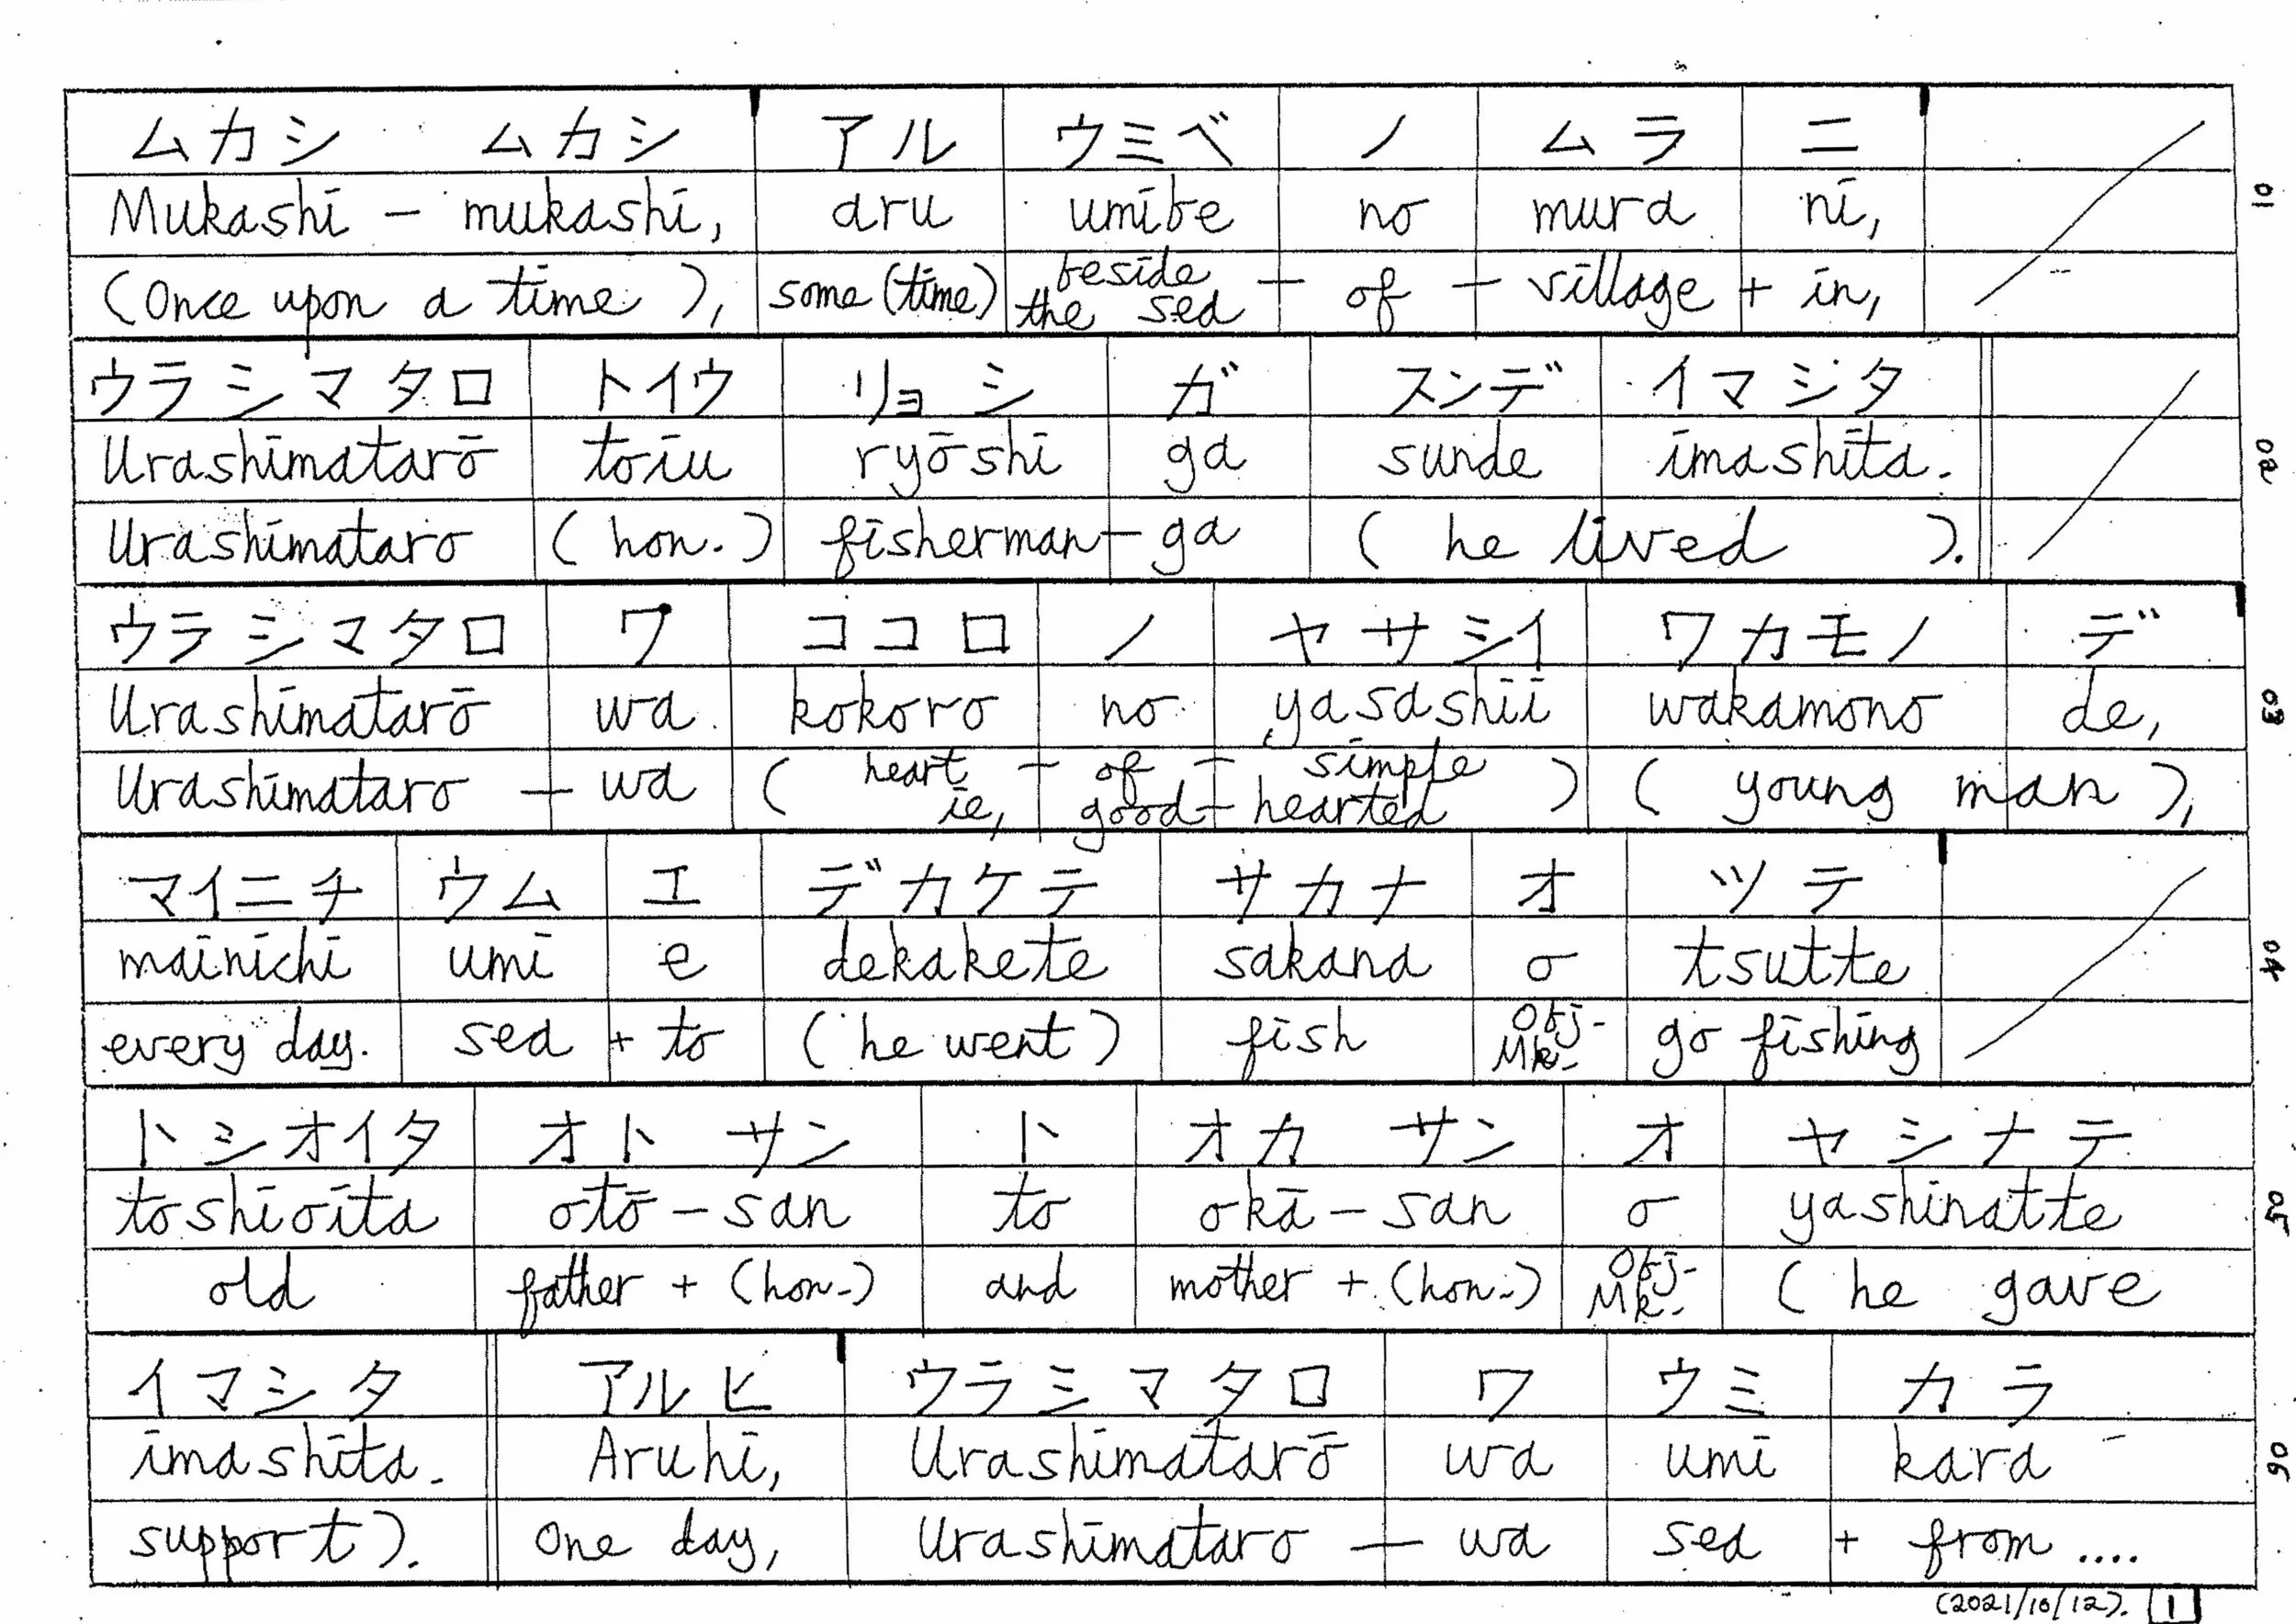 ムカシ ムカシ アル ウミベ ノ ムラ ニ
Mukashi - mukashi, aru umibe no mura ni,
(Once upon a time), some (time) beside the sea - of - village + in,
01
ウラシマタロ トイウ リョシ ガ スンデ イマシタ
Urashimatarō toiu ryōshi ga sunde imashita.
Urashimataro (hon.) fisherman - ga (he lived).
02
ウラシマタロ ワ ココロ ノ ヤサシイ ワカモノ デ
Urashimatarō wa kokoro no yasashii wakamono de,
Urashimataro - wa (heart - of - simple ie, good-hearted) (young man),
03
マイニチ ウム エ デカケテ サカナ オ ツテ
mainichi umi e dekakete sakana o tsutte
every day. sea + to (he went) fish Obj- Mk- go fishing
04
トシオイタ オト サン ト オカ サン オ ヤシナテ
toshioita otō-san to okā-san o yashinatte
old father + (hon-) and mother + (hon-) Obj- Mk- (he gave
05
イマシタ アルヒ ウラシマタロ ワ ウミ カラ
imashita. Aruhi, Urashimatarō wa umi kara
support). One day, Urashimataro - wa sea + from ....
06
(2021/10/12). 1